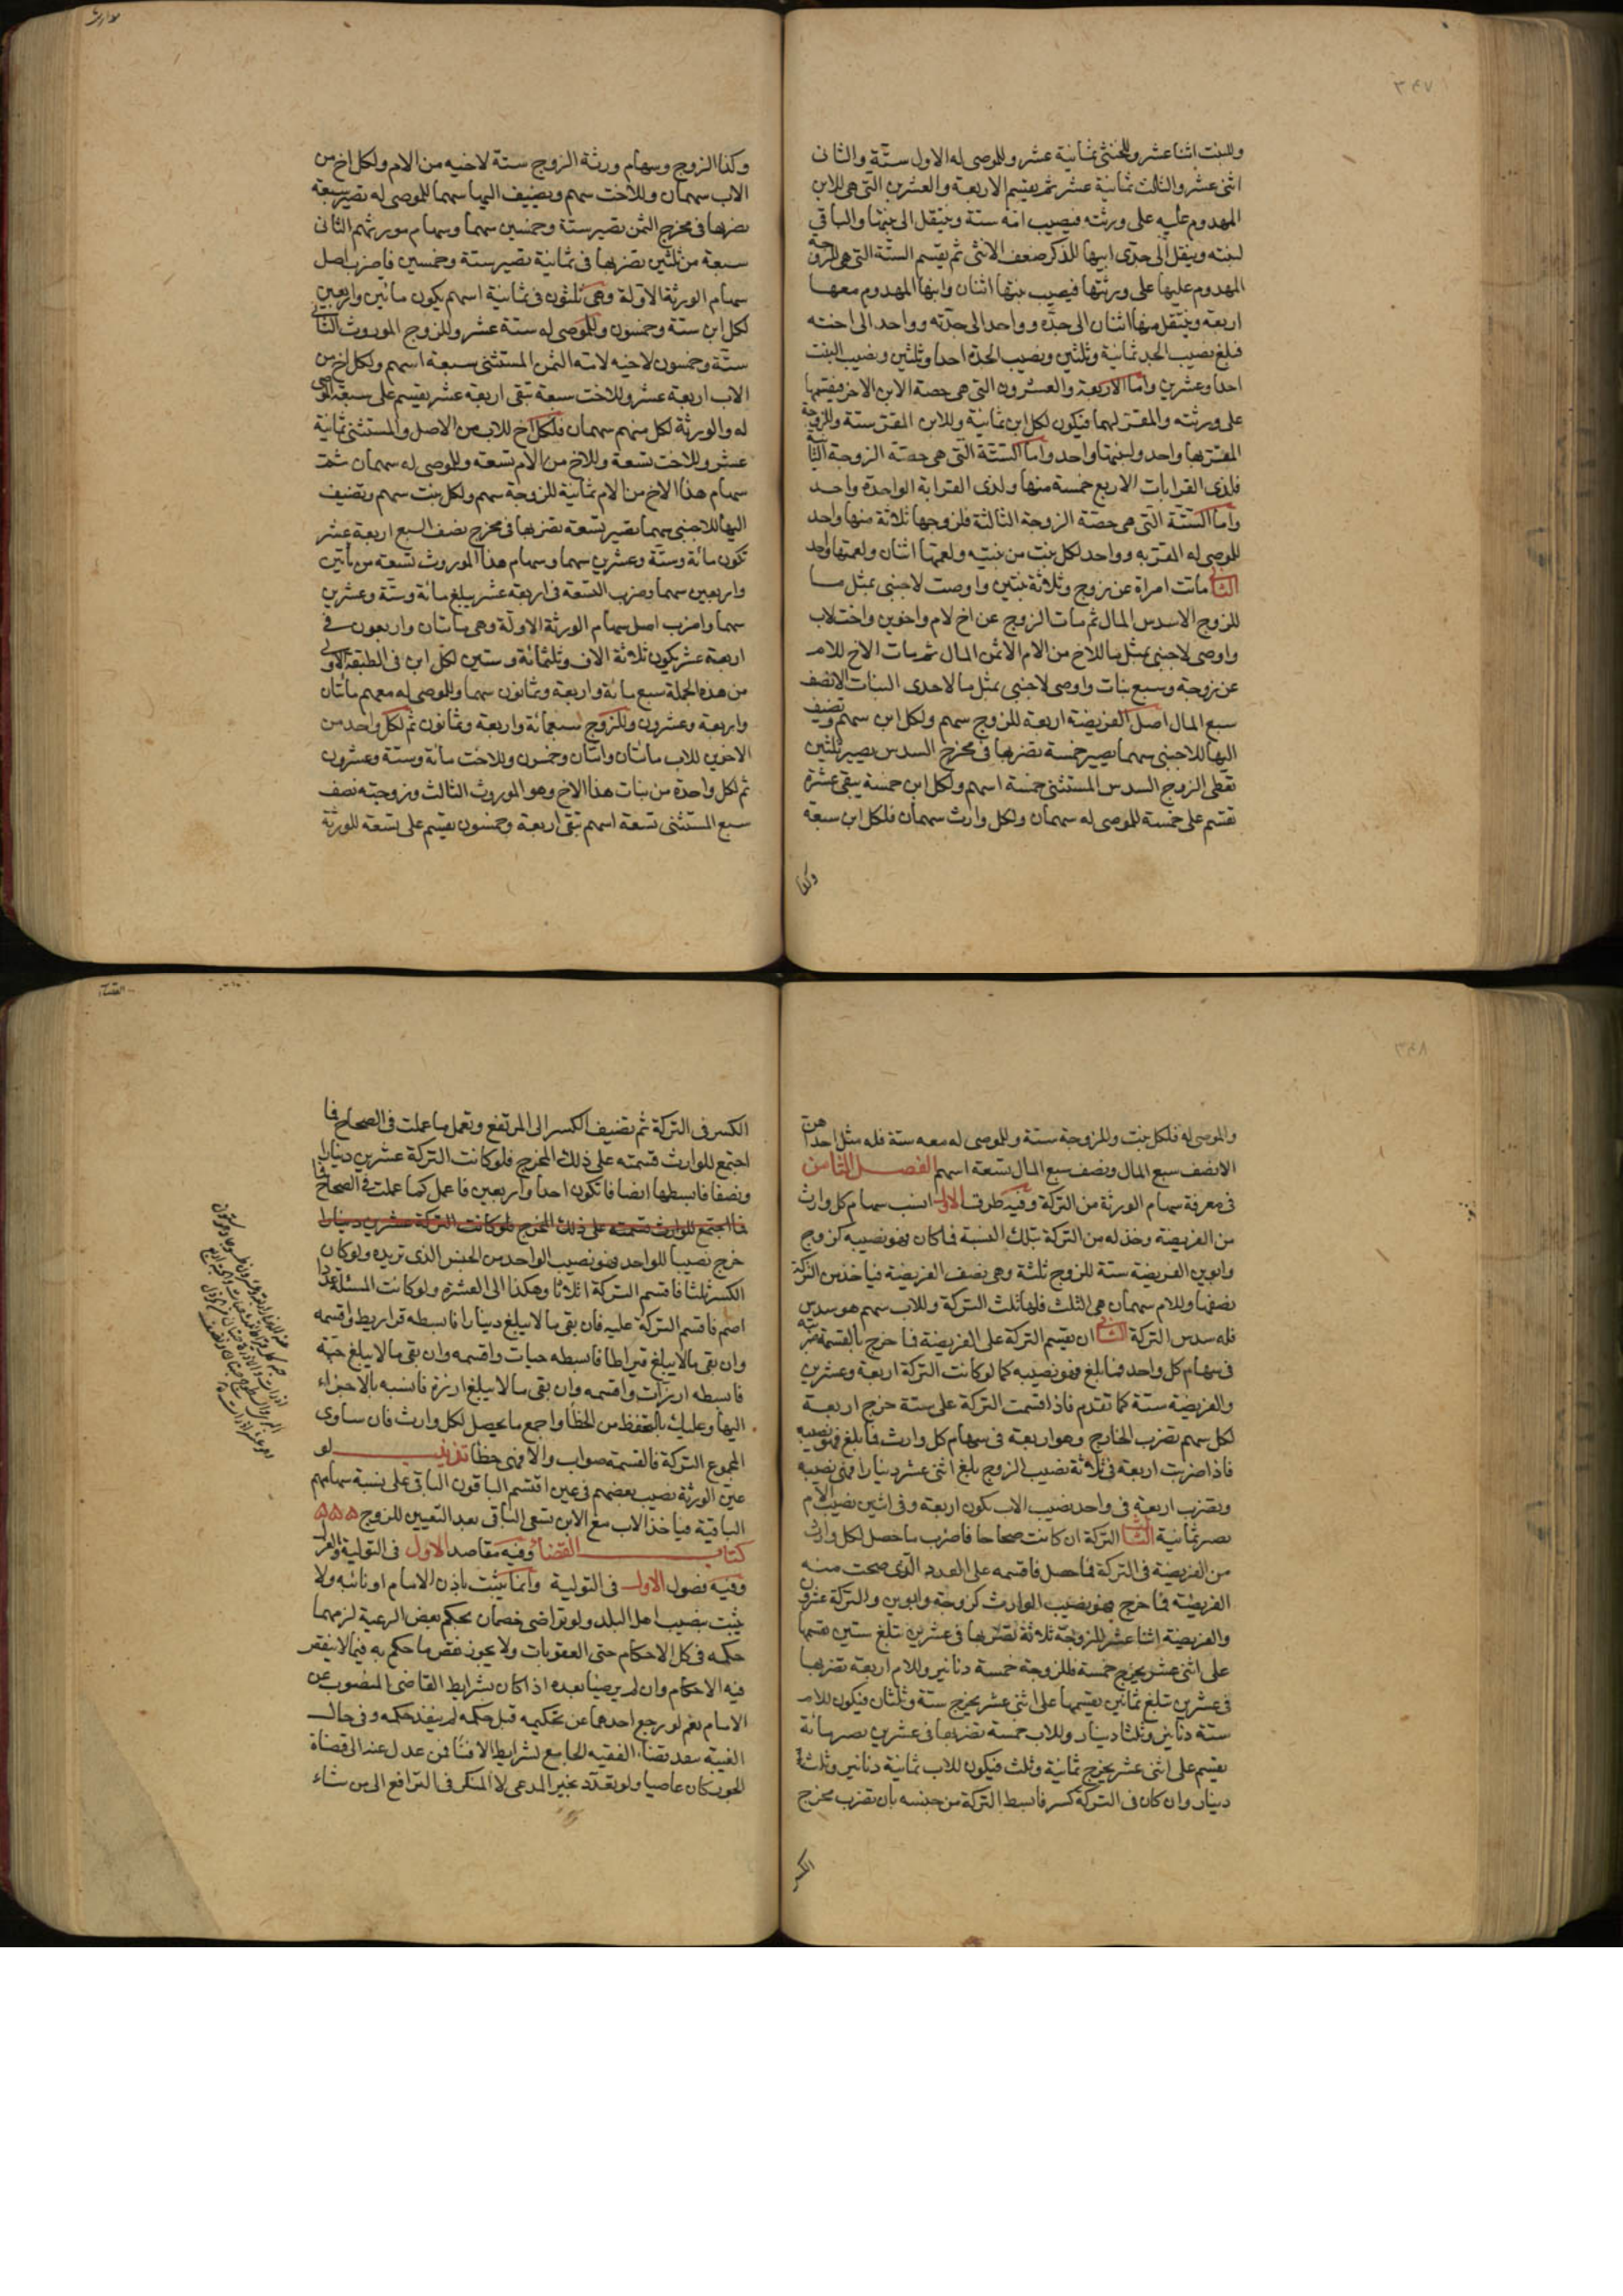 ٣٤٧
وللبنت اثنا عشر وللخنثى ثمانية عشر وللموصى له الاول ستة والثانى
اثنى عشر والثالث ثمانية عشر ثم يقسم الاربعة والعشرين التى هى للابن
المهدوم عليه على ورثته فيصيب امه ستة وينتقل الى بنتها والباقى
لبنته وينقل الى جدى ابيها للذكر ضعف الانثى ثم يقسم الستة التى هى للزوجة
المهدوم عليها على ورثتها فيصيب بنتها اثنان وابنها المهدوم معها
اربعة وينتقل منها اثنان الى جده وواحد الى جدته وواحد الى اخته
فبلغ نصيب الجد ثمانية وثلثين ونصيب الجدة احدا وثلثين ونصيب البنت
احدا وعشرين واما الاربعة والعشرون التى هى حصة الابن الاخر فيقسمها
على ورثته والمقر لهما فيكون لكل ابن ثمانية وللابن المقر ستة وللزوجة
المقر بها واحد ولبنتها واحد واما الستة التى هى حصة الزوجة الثانية
فلذى القرابات الاربع خمسة منها ولذى القرابة الواحدة واحد
واما الستة التى هى حصة الزوجة الثالثة فلزوجها ثلاثة منها واحد
للموصى له المقر به وواحد لكل بنت من بنتيه ولعمتها اثنان ولعمتها واحد
الثامنة ماتت امراة عن زوج وثلاثة بنين واوصت لاجنبى بمثل ما
للزوج الا سدس المال ثم مات الزوج عن اخ لام واخوين واخت لاب
واوصى لاجنبى بمثل ما للاخ من الام الا ثمن المال ثم مات الاخ للام
عن زوجة وسبع بنات واوصى لاجنبى بمثل ما لاحدى البنات الا نصف
سبع المال اصل الفريضة اربعة للزوج سهم ولكل ابن سهم وتضيف
اليها للاجنبى سهما يصير خمسة تضربها فى مخرج السدس يصير ثلثين
تعطى الزوج السدس المستثنى خمسة اسهم ولكل ابن خمسة يبقى عشرة
تقسم على خمسة للموصى له سهمان ولكل وارث سهمان فلكل ابن سبعة
وكذا
وكذا الزوج وسهام ورثة الزوج ستة لاخيه من الام ولكل اخ من
الاب سهمان وللاخت سهم وتضيف اليها سهما للموصى له تصير سبعة
تضربها فى مخرج الثمن تصير ستة وخمسين سهما وسهام مورثهم الثانى
سبعة من ثلثين تضربها فى ثمانية تصير ستة وخمسين فاضرب اصل
سهام الورثة الاولة وهى ثلثون فى ثمانية اسهم يكون مائتين واربعين
لكل ابن ستة وخمسون وللموصى له ستة عشر وللزوج الموروث الثانى
ستة وخمسون لاخيه لامه الثمن المستثنى سبعة اسهم ولكل اخ من
الاب اربعة عشر وللاخت سبعة تبقى اربعة عشر يقسم على سبعة للموصى
له والورثة لكل منهم سهمان فلكل اخ للاب من الاصل والمستثنى ثمانية
عشر وللاخت تسعة وللاخ من الام تسعة وللموصى له سهمان ثمت
سهام هذا الاخ من الام ثمانية للزوجة سهم ولكل بنت سهم وتضيف
اليها للاجنبى سهما تصير تسعة تضربها فى مخرج نصف السبع اربعة عشر
تكون مائة وستة وعشرين سهما وسهام هذا الموروث تسعة من مأتين
واربعين سهما وضرب التسعة فى اربعة عشر يبلغ مائة وستة وعشرين
سهما واضرب اصل سهام الورثة الاولة وهى مائتان واربعون فى
اربعة عشر يكون ثلاثة الاف وثلثمائة وستين لكل ابن فى الطبقة الاولى
من هذه الجملة سبع مائة واربعة وثمانون سهما وللموصى له معهم مائتان
واربعة وعشرون وللزوج سبعمائة واربعة وثمانون ثم لكل واحد من
الاخوين للاب مائتان واثنان وخمسون وللاخت مائة وستة وعشرون
ثم لكل واحدة من بنات هذا الاخ وهو الموروث الثالث وزوجته نصف
سبع المستثنى تسعة اسهم تبقى اربعة وخمسون يقسم على تسعة للورثة
٣٤٨
والموصى له فلكل بنت وللزوجة ستة وللموصى له معه ستة فله مثل احداهن
الا نصف سبع المال ونصف سبع المال تسعة اسهم الفصل الثامن
فى معرفة سهام الورثة من التركة وفيه طرق الاول انسب سهام كل وارث
من الفريضة وخذ له من التركة بتلك النسبة فما كان فهو نصيبه كزوج
وابوين الفريضة ستة للزوج ثلثة وهى نصف الفريضة فياخذ من التركة
نصفها وللام سهمان هى الثلث فلها ثلث التركة وللاب سهم هو سدس
فله سدس التركة الثانى ان تقسم التركة على الفريضة فما خرج بالقسمة ضربته
فى سهام كل واحد فما بلغ فهو نصيبه كما لو كانت التركة اربعة وعشرين
والفريضة ستة كما تقدم فاذا قسمت التركة على ستة خرج اربعة
لكل سهم تضرب الخارج وهو اربعة فى سهام كل وارث فما بلغ فهو نصيبه
فاذا ضربت اربعة فى ثلاثة نصيب الزوج بلغ اثنى عشر دينارا فهى نصيبه
وتضرب اربعة فى واحد نصيب الاب تكون اربعة وفى اثنين نصيب الام
تصير ثمانية الثالث التركة ان كانت صحاحا فاضرب ما حصل لكل وارث
من الفريضة فى التركة فما حصل فاقسمه على العدد الذى صحت منه
الفريضة فما خرج فهو نصيب الوارث كزوجة وابوين والتركة عشرون
والفريضة اثنا عشر للزوجة ثلاثة تضربها فى عشرين تبلغ ستين تقسمها
على اثنى عشر يخرج خمسة فللزوجة خمسة دنانير وللام اربعة تضربها
فى عشرين تبلغ ثمانين تقسمها على اثنى عشر يخرج ستة وثلثان فيكون للام
ستة دنانير وثلثا دينار وللاب خمسة تضربها فى عشرين تصير مائة
تقسم على اثنى عشر يخرج ثمانية وثلث فيكون للاب ثمانية دنانير وثلث
دينار وان كان فى التركة كسر فابسط التركة من جنسه بان تضرب مخرج
الكسر
الكسر فى التركة ثم تضيف الكسر الى المرتفع وتعمل ما عملت فى الصحاح فما
اجتمع للوارث قسمته على ذلك المخرج فلو كانت التركة عشرين دينارا
ونصفا فابسطها انصافا تكون احدا واربعين فاعمل كما عملت فى الصحاح فما
فما اجتمع للوارث قسمته على ذلك المخرج فلو كانت التركة عشرين دينارا
خرج نصيبا للواحد فهو نصيب الواحد من الجنس الذى تريده ولو كان
الكسر ثلثا فاقسم التركة اثلاثا وهكذا الى العشرة ولو كانت المسئلة عددا
اصم فاقسم التركة عليه فان بقى ما لا يبلغ دينارا فابسطه قراريط واقسمه
وان بقى ما لا يبلغ قيراطا فابسطه حبات واقسمه وان بقى ما لا يبلغ حبة
فابسطه ارزات واقسمه وان بقى ما لا يبلغ ارزة فانسبه بالاجزاء
اليها وعليك بالتحفظ من الخطأ واجمع ما يحصل لكل وارث فان ساوى
المجموع التركة فالقسمة صواب والا فهى خطأ تذنيب لو
عين الورثة نصيب بعضهم فى عين اقتسم الباقون الباقى على نسبة سهامهم
الباقية فياخذ الاب مع الابن تسعى الباقى بعد التعيين للزوج
كتاب القضاء وفيه مقاصد الاول فى التولية والعزل
وفيه فصول الاول فى التولية وانما يثبت باذن الامام او نائبه ولا
يثبت بنصب اهل البلد ولو تراضى خصمان بحكم بعض الرعية لزمهما
حكمه فى كل الاحكام حتى العقوبات ولا يجوز نقض ما حكم به فيما لا ينقض
فيه الاحكام وان لم يرضيا بعده اذا كان بشرايط القاضى المنصوب عن
الامام نعم لو رجع احدهما عن تحكيمه قبل حكمه لم ينفذ حكمه وفى حال
الغيبة ينفذ قضاء الفقيه الجامع لشرايط الافتاء فمن عدل عنه الى قضاة
الجور كان عاصيا ولو تعدد تخير المدعى لا المنكر فى الترافع الى من شاء